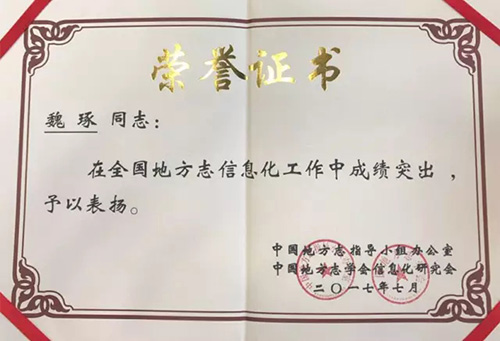 荣誉证书
魏琢 同志：
在全国地方志信息化工作中成绩突出，
予以表扬。
中国地方志指导小组办公室
中国地方志学会信息化研究会
二〇一七年七月